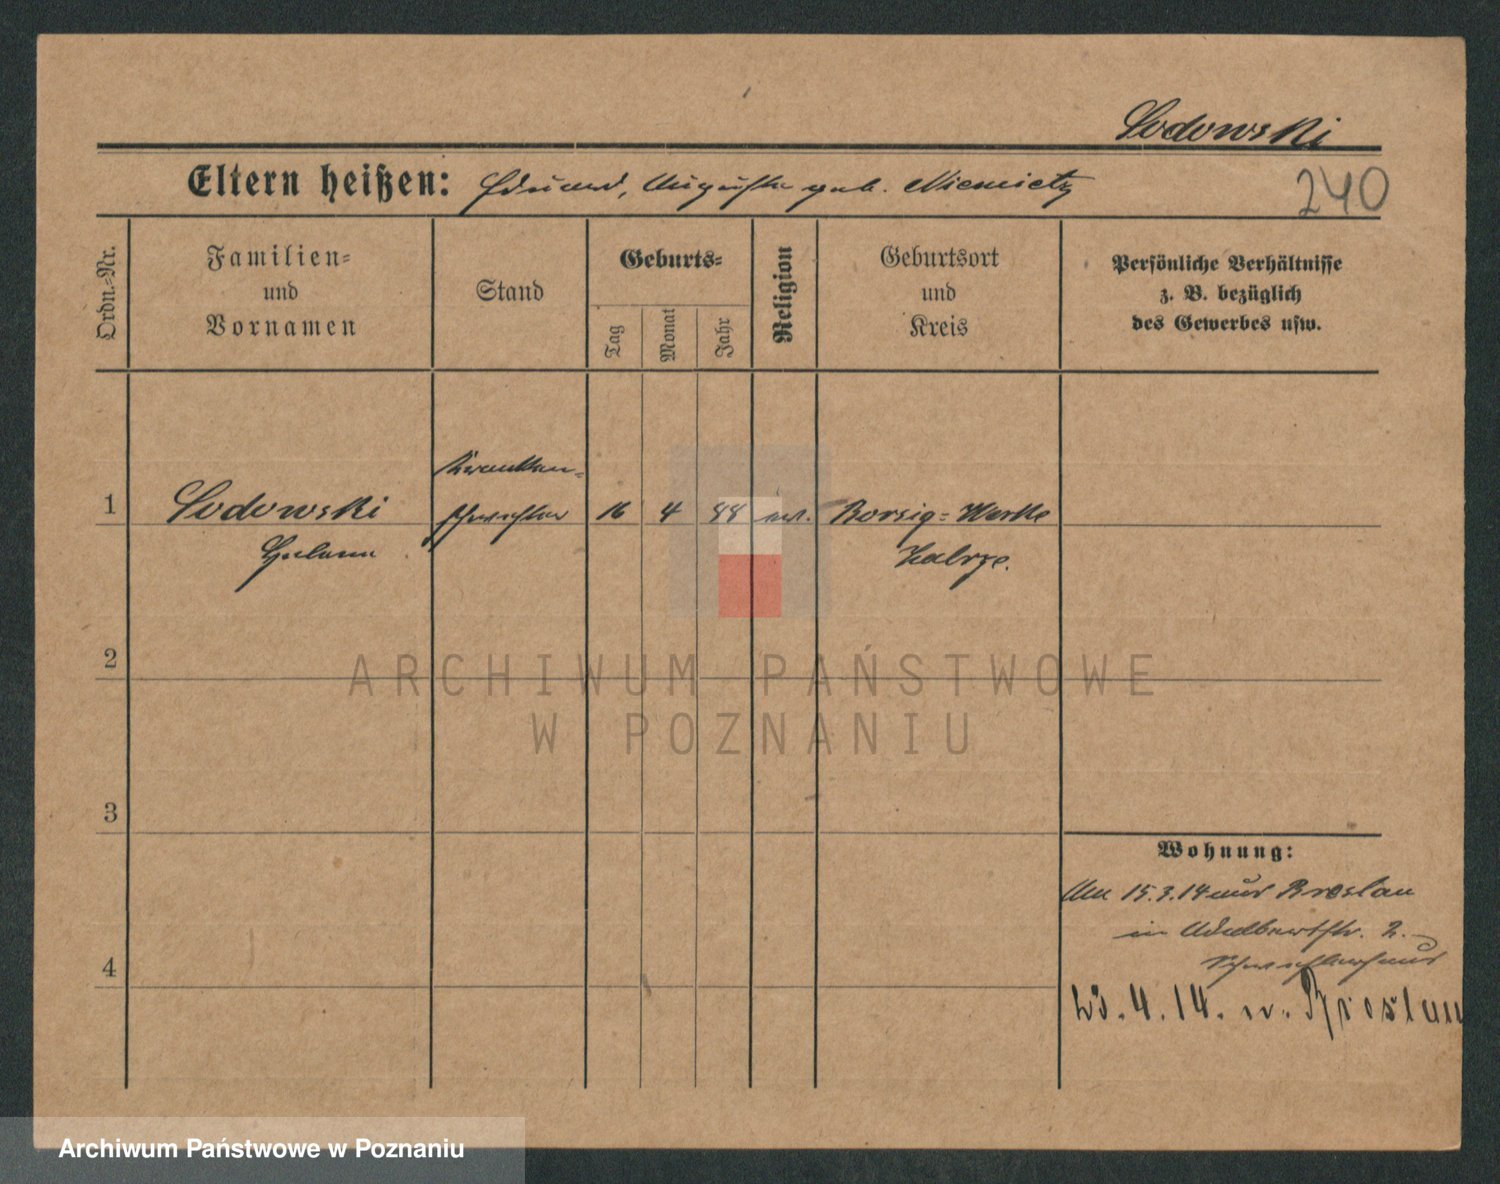 Sodowski
Eltern heißen: Eduard, Auguste geb. Niemietz
240
Ordn.=Nr.
Familien=
und
Vornamen
Stand
Geburts=
Tag
Monat
Jahr
Religion
Geburtsort
und
Kreis
Persönliche Verhältnisse
z. B. bezüglich
des Gewerbes usw.
Kranken-
1 Sodowski schwester 16 4 88 Borsig=Werke
Helene Zabrze.
2
ARCHIWUM PAŃSTWOWE
W POZNANIU
3
Wohnung:
Am 15.3.14 aus Breslau
in Adalbertstr. 2.
Schwesternhaus
23.4.14. n. Breslau
4
Archiwum Państwowe w Poznaniu